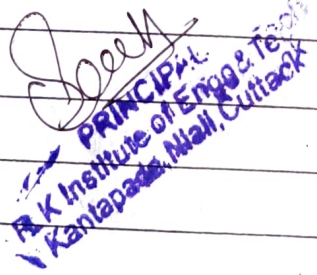 PRINCIPAL
R K Institute of Engg & Tech
Kantapada, Niali, Cuttack